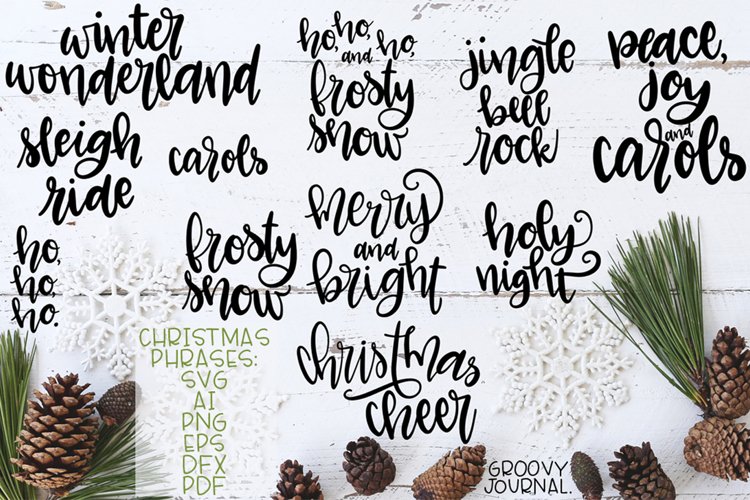 winter
wonderland
ho, ho, ho,
and
frosty
snow
jingle
bell
rock
peace,
joy
and
carols
sleigh
ride
carols
merry
and
bright
holy
night
ho,
ho,
ho.
frosty
snow
CHRISTMAS
PHRASES:
SVG
AI
PNG
EPS
DFX
PDF
christmas
cheer
GROOVY
JOURNAL.